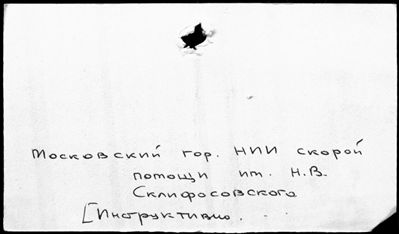 Московский гор. НИИ скорой
помощи им. Н.В.
Склифосовского
[Инструктивно. . .